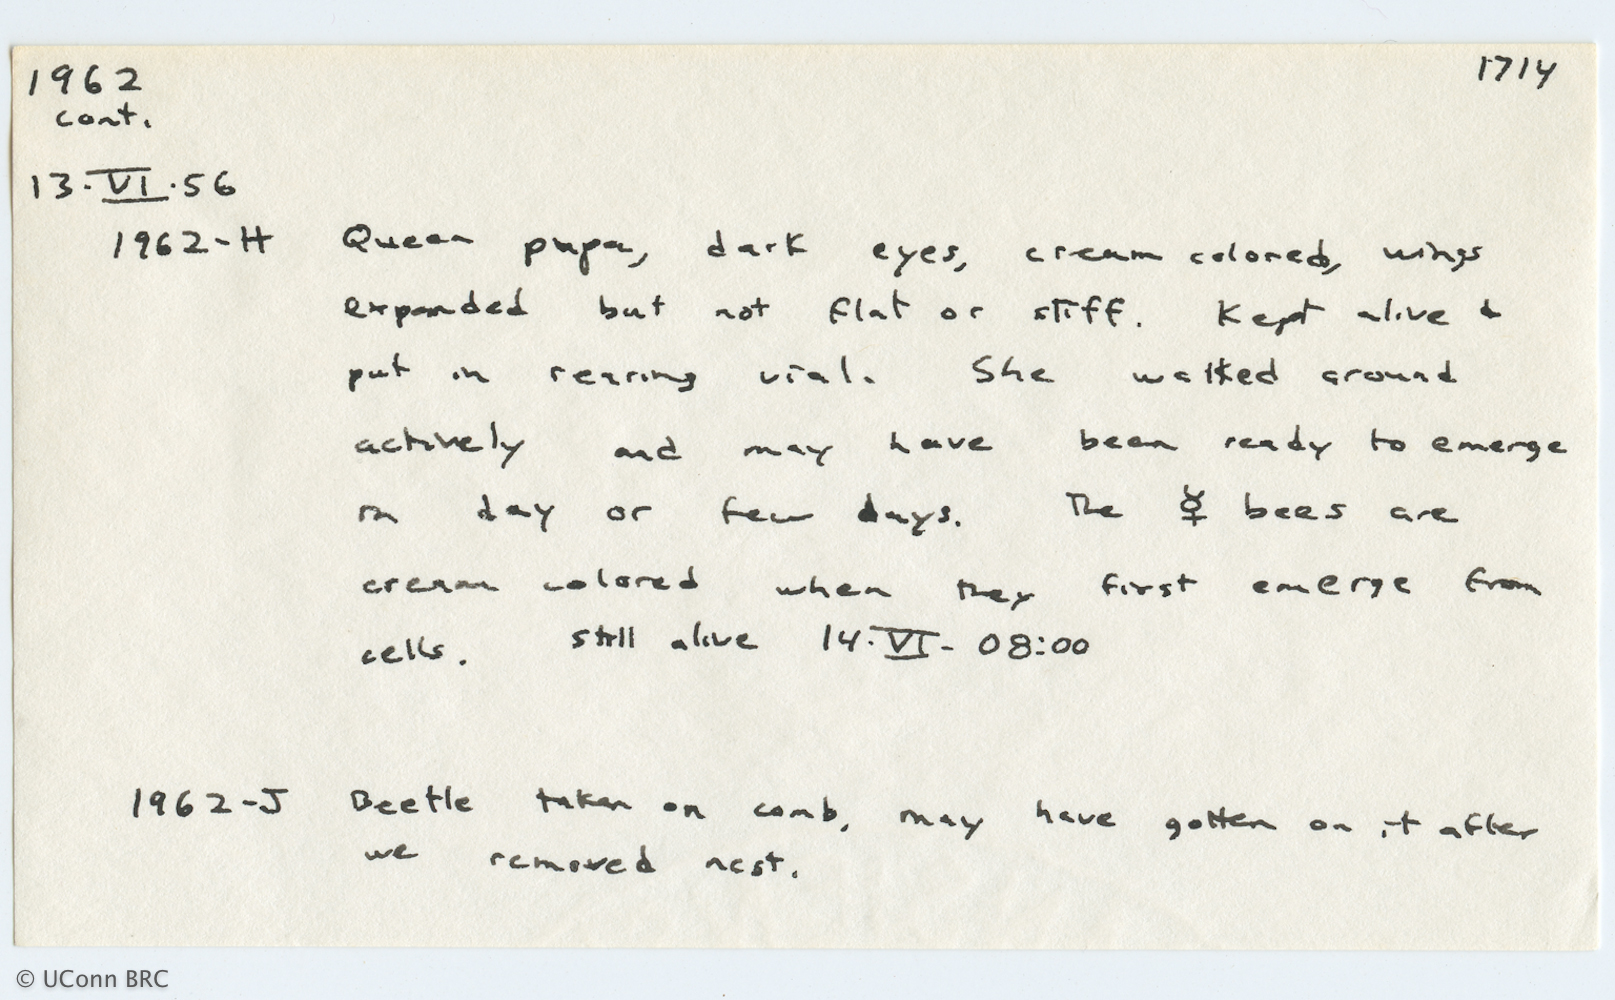 1962
1714
cont.
13·VI·56
1962-H Queen pupa, dark eyes, cream colored, wings
expanded but not flat or stiff. Kept alive &
put in rearing vial. She walked around
actively and may have been ready to emerge
in day or few days. The ☿ bees are
cream colored when they first emerge from
cells. still alive 14·VI- 08:00
1962-J Beetle taken on comb, may have gotten on it after
we removed nest.
© UConn BRC